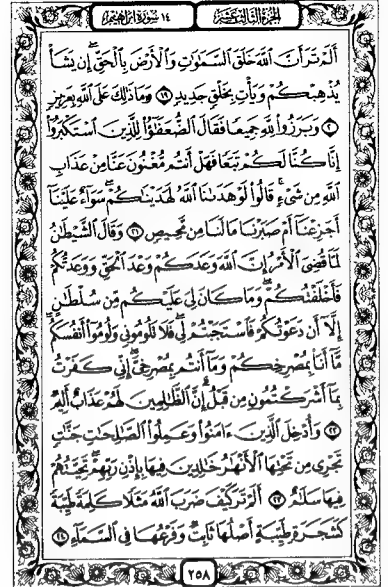 الجزء الثالث عشر
١٤ سورة إبراهيم
أَلَمْ تَرَ أَنَّ ٱللَّهَ خَلَقَ ٱلسَّمَٰوَٰتِ وَٱلْأَرْضَ بِٱلْحَقِّ ۚ إِن يَشَأْ
يُذْهِبْكُمْ وَيَأْتِ بِخَلْقٍ جَدِيدٍ ﴿١٩﴾ وَمَا ذَٰلِكَ عَلَى ٱللَّهِ بِعَزِيزٍ
﴿٢٠﴾ وَبَرَزُوا۟ لِلَّهِ جَمِيعًا فَقَالَ ٱلضُّعَفَٰٓؤُا۟ لِلَّذِينَ ٱسْتَكْبَرُوٓا۟
إِنَّا كُنَّا لَكُمْ تَبَعًا فَهَلْ أَنتُم مُّغْنُونَ عَنَّا مِنْ عَذَابِ
ٱللَّهِ مِن شَىْءٍ ۚ قَالُوا۟ لَوْ هَدَىٰنَا ٱللَّهُ لَهَدَيْنَٰكُمْ ۖ سَوَآءٌ عَلَيْنَآ
أَجَزِعْنَآ أَمْ صَبَرْنَا مَا لَنَا مِن مَّحِيصٍ ﴿٢١﴾ وَقَالَ ٱلشَّيْطَٰنُ
لَمَّا قُضِىَ ٱلْأَمْرُ إِنَّ ٱللَّهَ وَعَدَكُمْ وَعْدَ ٱلْحَقِّ وَوَعَدتُّكُمْ
فَأَخْلَفْتُكُمْ ۖ وَمَا كَانَ لِىَ عَلَيْكُم مِّن سُلْطَٰنٍ
إِلَّآ أَن دَعَوْتُكُمْ فَٱسْتَجَبْتُمْ لِى ۖ فَلَا تَلُومُونِى وَلُومُوٓا۟ أَنفُسَكُم ۖ
مَّآ أَنَا۠ بِمُصْرِخِكُمْ وَمَآ أَنتُم بِمُصْرِخِىَّ ۖ إِنِّى كَفَرْتُ
بِمَآ أَشْرَكْتُمُونِ مِن قَبْلُ ۗ إِنَّ ٱلظَّٰلِمِينَ لَهُمْ عَذَابٌ أَلِيمٌ
﴿٢٢﴾ وَأُدْخِلَ ٱلَّذِينَ ءَامَنُوا۟ وَعَمِلُوا۟ ٱلصَّٰلِحَٰتِ جَنَّٰتٍ
تَجْرِى مِن تَحْتِهَا ٱلْأَنْهَٰرُ خَٰلِدِينَ فِيهَا بِإِذْنِ رَبِّهِمْ ۖ تَحِيَّتُهُمْ
فِيهَا سَلَٰمٌ ﴿٢٣﴾ أَلَمْ تَرَ كَيْفَ ضَرَبَ ٱللَّهُ مَثَلًا كَلِمَةً طَيِّبَةً
كَشَجَرَةٍ طَيِّبَةٍ أَصْلُهَا ثَابِتٌ وَفَرْعُهَا فِى ٱلسَّمَآءِ ﴿٢٤﴾
٢٥٨